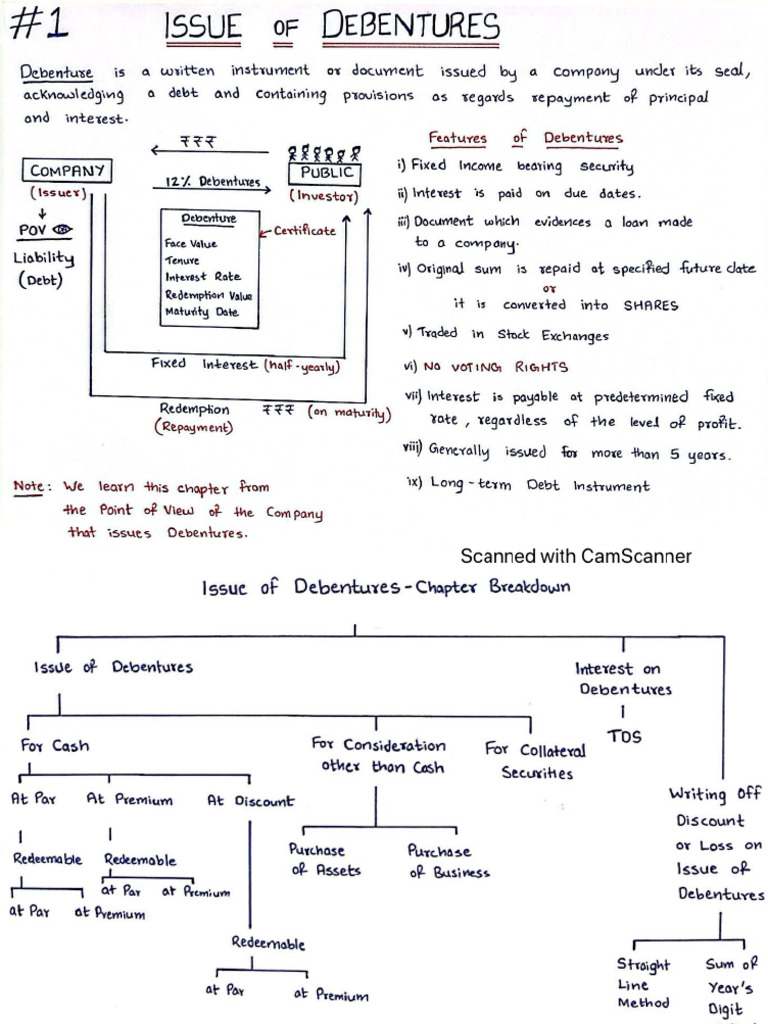 #1 ISSUE OF DEBENTURES
Debenture is a written instrument or document issued by a company under its seal,
acknowledging a debt and containing provisions as regards repayment of principal
and interest.
₹₹₹
COMPANY
(Issuer)
12% Debentures
PUBLIC
(Investor)
POV
Liability
(Debt)
Debenture
Face Value
Tenure
Interest Rate
Redemption Value
Maturity Date
Certificate
Fixed Interest (half-yearly)
Redemption ₹₹₹ (on maturity)
(Repayment)
Note: We learn this chapter from
the Point of View of the Company
that issues Debentures.
Features of Debentures
i) Fixed Income bearing security
ii) Interest is paid on due dates.
iii) Document which evidences a loan made
to a company.
iv) Original sum is repaid at specified future date
or
it is converted into SHARES
v) Traded in Stock Exchanges
vi) NO VOTING RIGHTS
vii) Interest is payable at predetermined fixed
rate, regardless of the level of profit.
viii) Generally issued for more than 5 years.
ix) Long-term Debt Instrument
Scanned with CamScanner
Issue of Debentures - Chapter Breakdown
Issue of Debentures
Interest on
Debentures
TDS
For Cash
For Consideration
other than Cash
For Collateral
Securities
At Par
At Premium
At Discount
Redeemable
at Par
at Premium
Redeemable
at Par
at Premium
Redeemable
at Par
at Premium
Purchase
of Assets
Purchase
of Business
Writing Off
Discount
or Loss on
Issue of
Debentures
Straight
Line
Method
Sum of
Year's
Digit